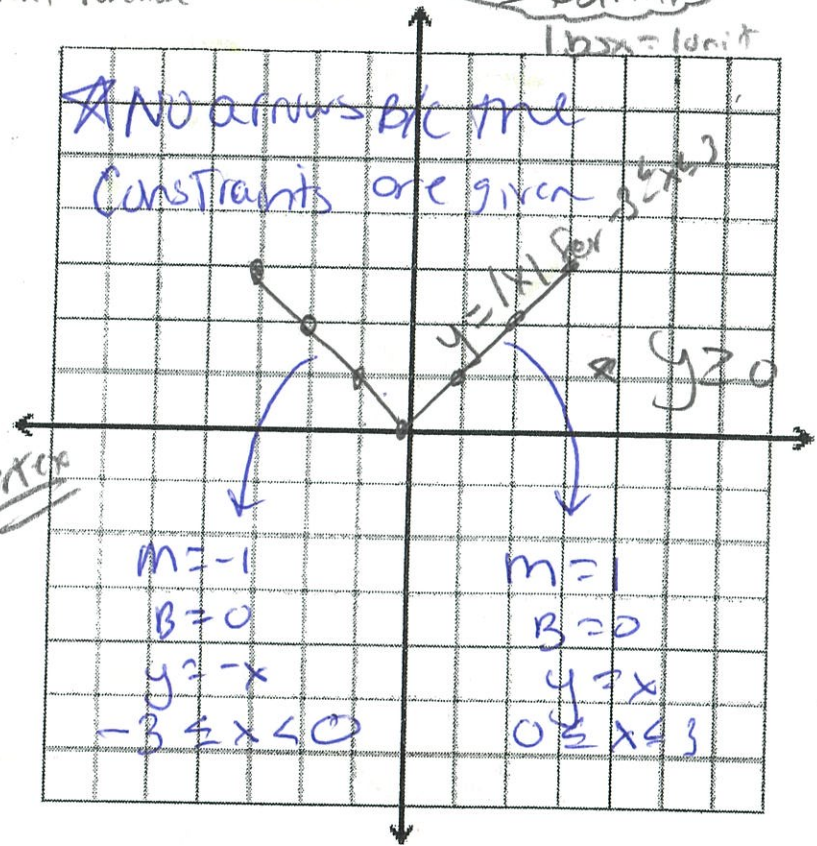 1 box = 1 unit
☆ No arrows B/C the
Constraints are given
y = |x| for -3 ≤ x ≤ 3
* y ≥ 0
m = -1
B = 0
y = -x
-3 ≤ x < 0
m = 1
B = 0
y = x
0 ≤ x ≤ 3